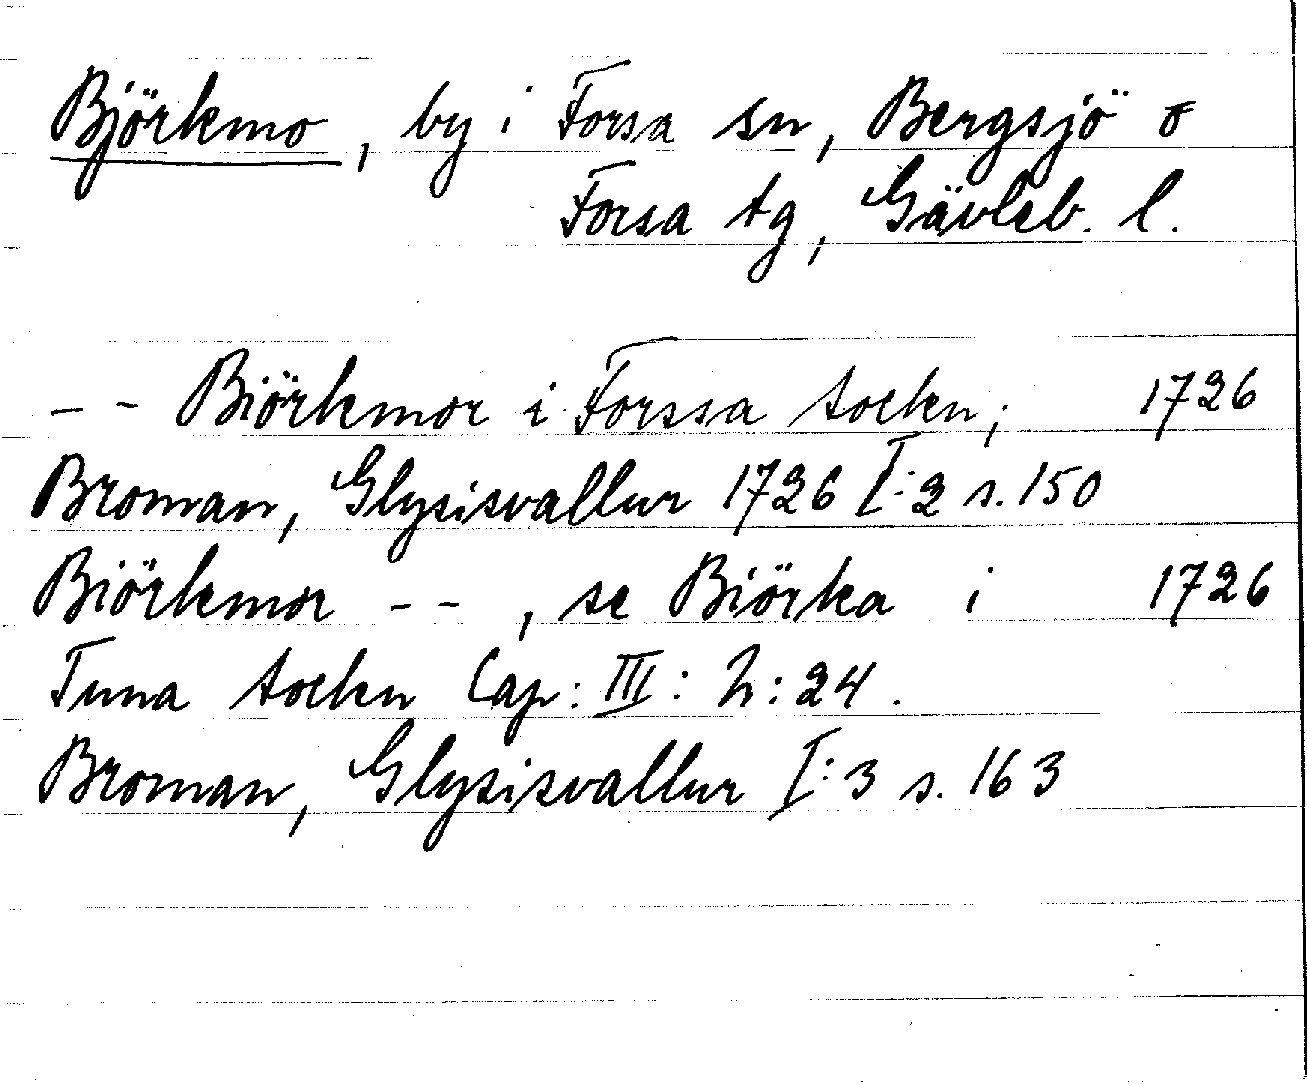 Björkmo, by i Forsa sn, Bergsjö o
Forsa tg, Gävleb. l.
-- Biörkmor i Forssa sockn; 1726
Broman, Glysisvallur 1726 I:2 s. 150
Biörkmor --, se Biörka i 1726
Tuna sockn Cap: III: h: 24.
Broman, Glysisvallur I:3 s. 163